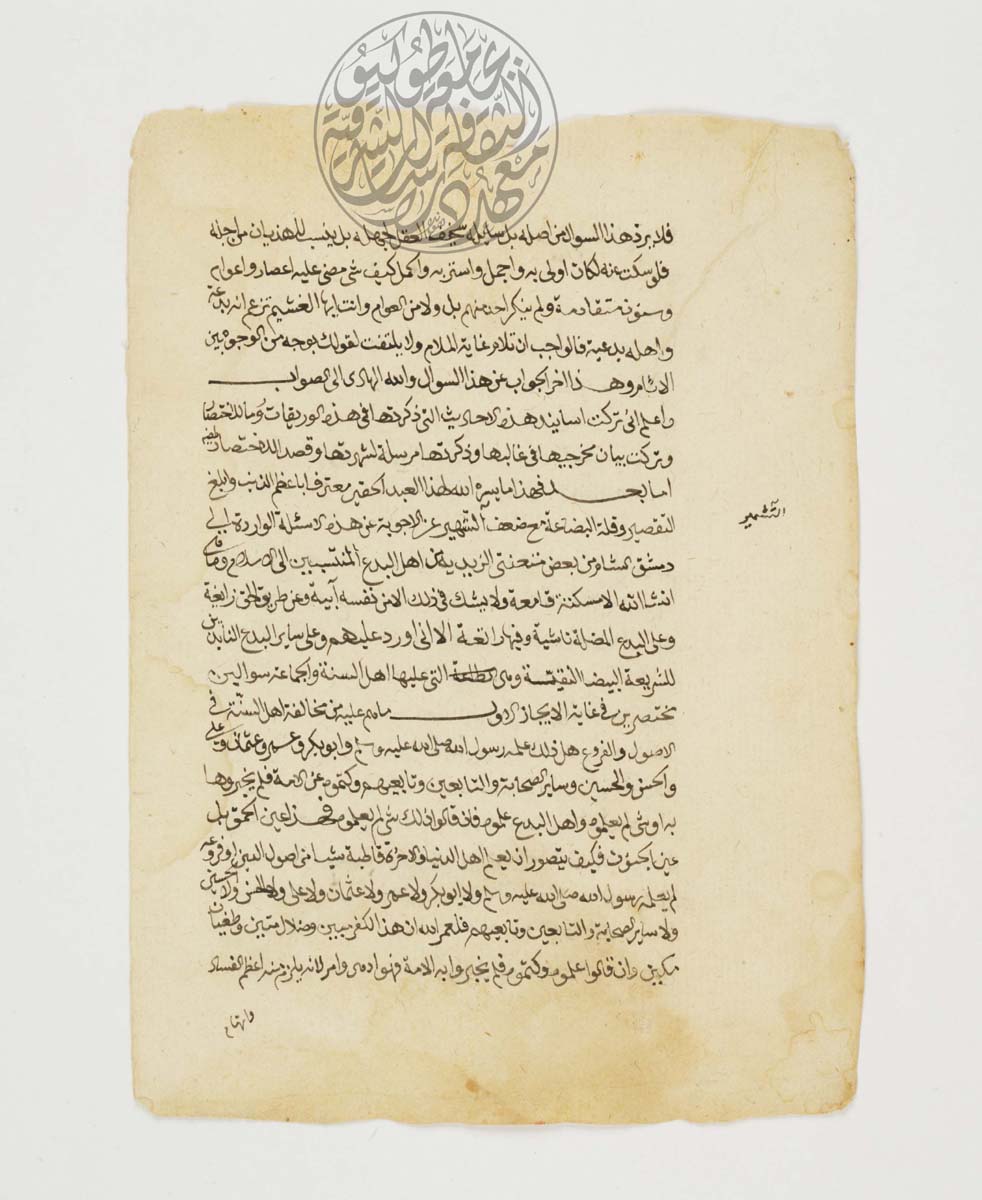 فلا يرد هذا السوال من اصله بل سايله سخيف العقل لجهله بل ينسب للهذيان من اجله
فلو سكت عنه لكان اولى به واجمل واستر به واكمل كيف شى مضى عليه اعصار واعوام
وسنون متقادمة ولم ينكر احد منهم بل ولا من العوام وانت ايها الغشيم تزعم انه بدعة
واهله بدعية فالواجب ان تلام غاية الملام ولا يلتفت لقولك بوجه من الوجوه بين
الانام وهذا اخر الجواب عن هذا السوال والله الهادى الى الصواب
واعلم انى تركت اسانيد هذه الاحاديث التى ذكرتها فى هذه الوريقات روما للاختصار
وتركت بيان مخرجيها فى غالبها وذكرتها مرسلة لشهرتها وقصد الاختصار
اما بعد فهذا ما يسره الله لهذا العبد الحقير معترفا باعظم الذنب وابلغ
التقصير وقلة البضاعة مع ضعف التشهير عن الاجوبة عن هذه الاسئلة الواردة الى
دمشق الشام من بعض متعنتى الزيدية من اهل البدع المنتسبين الى الاسلام وما فى
انشا الله الا مسكتة قامعة ولا يشك فى ذلك الا من نفسه آبية وعن طريق الحق زايغة
وعلى البدع المضلة ناشية وفيها راتعة الا انى اورد عليهم وعلى ساير البدع النابذين
للشريعة البيضا النقية التى عليها اهل السنة والجماعة سوالين
مختصرين فى غاية الايجاز الاول ما هم عليه من مخالفة اهل السنة فى
الاصول والفروع هل ذلك علمه رسول الله صلى الله عليه وسلم وابو بكر وعمر وعثمان وعلى
والحسن والحسين وساير الصحابة والتابعين وتابعيهم وكتموه عن الامة فلم يخبروها
به او شى لم يعلموه واهل البدع علموه فان قالوا ذلك شى لم يعلموه فهذا عين الحمق بل
عين الجنون فكيف يتصور ان يعلم اهل الدنيا والاخرة قاطبة شيا من اصول الدين او فروعه
لم يعلمه رسول الله صلى الله عليه وسلم ولا ابو بكر ولا عمر ولا عثمان ولا على ولا الحسن ولا الحسين
ولا ساير الصحابة والتابعين وتابعيهم فلعمر الله ان هذا الكفر مبين وضلال متين وطغيان
مكين وان قالوا علموه وكتموه فلم يخبروا به الامة فهو ادهى وامر لانه يلزم منه اعظم الفساد
واتهام
التشمير